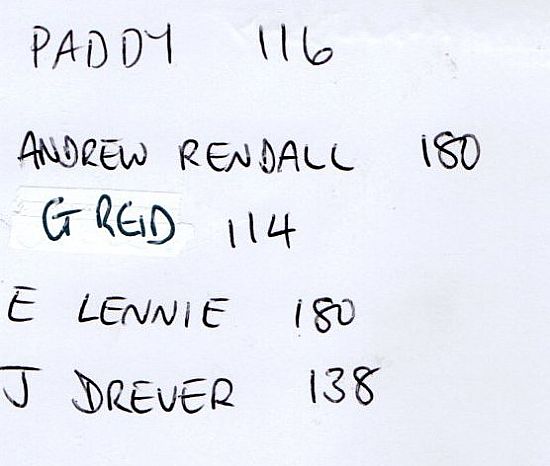 PADDY 116
ANDREW RENDALL 180
G REID 114
E LENNIE 180
J DREVER 138